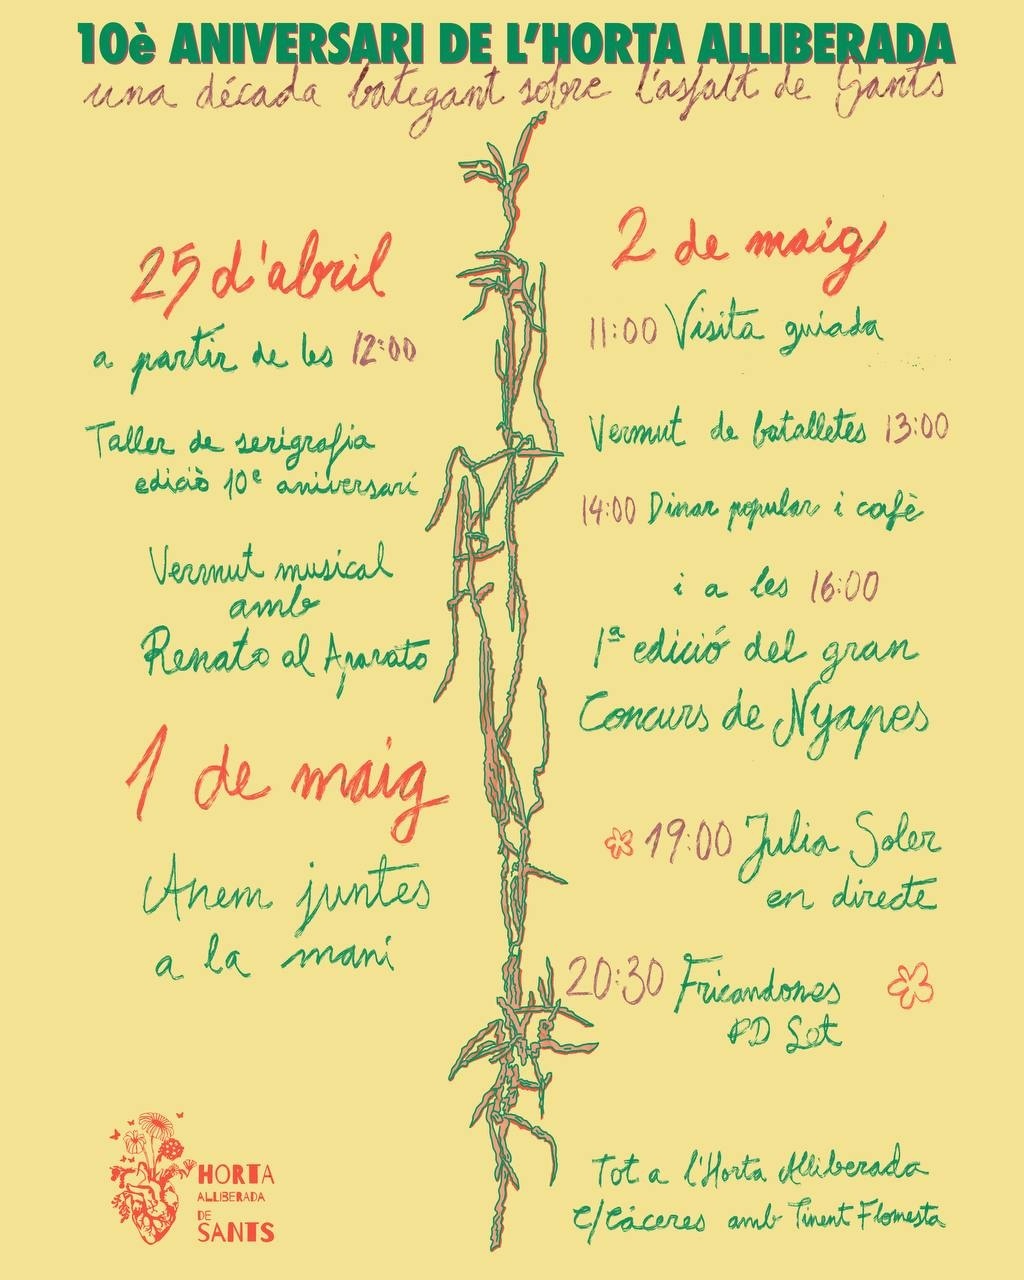 10è ANIVERSARI DE L'HORTA ALLIBERADA
una década bategant sobre l'asfalt de Sants
25 d'abril
a partir de les 12:00
Taller de serigrafia
edició 10e aniversari
Vermut musical
amb
Renato al Aparato
1 de maig
Anem juntes
a la mani
2 de maig
11:00 Visita guiada
Vermut de batalletes 13:00
14:00 Dinar popular i cafè
i a les 16:00
1ª edició del gran
Concurs de Nyapes
19:00 Julia Soler
en directe
20:30 Fricandones
PD Set
Tot a l'Horta Alliberada
C/Cáceres amb Tinent Flomesta
HORTA
ALLIBERADA
DE
SANTS